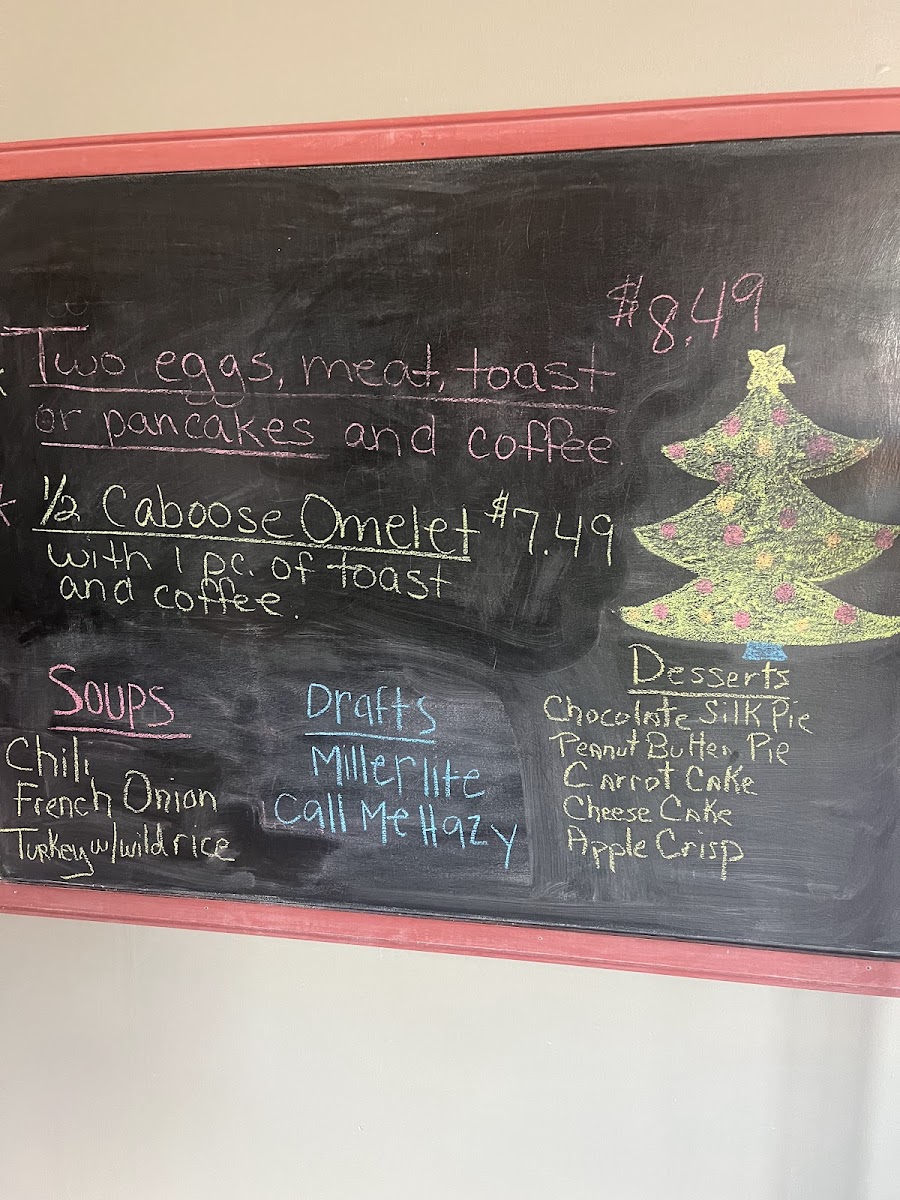 $8.49
Two eggs, meat, toast
or pancakes and coffee.
1/2 Caboose Omelet $7.49
with 1 pc. of toast
and coffee.
Soups
Chili
French Onion
Turkey w/wild rice
Drafts
Miller lite
Call Me Hazy
Desserts
Chocolate Silk Pie
Peanut Butter Pie
Carrot Cake
Cheese Cake
Apple Crisp